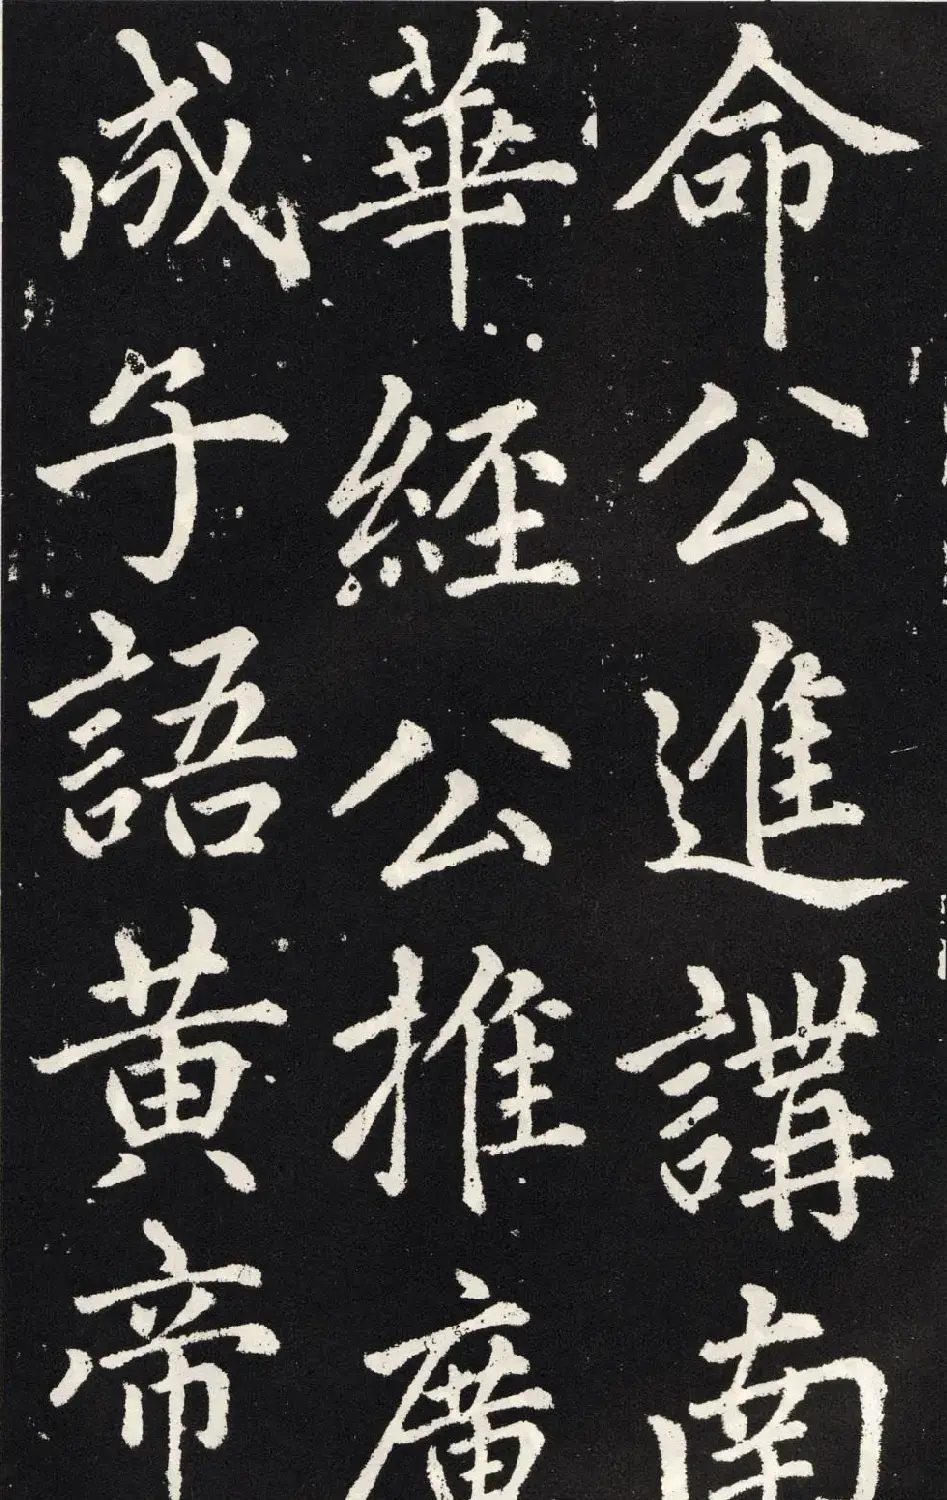 命公進講南
華經公推廣
成子語黃帝